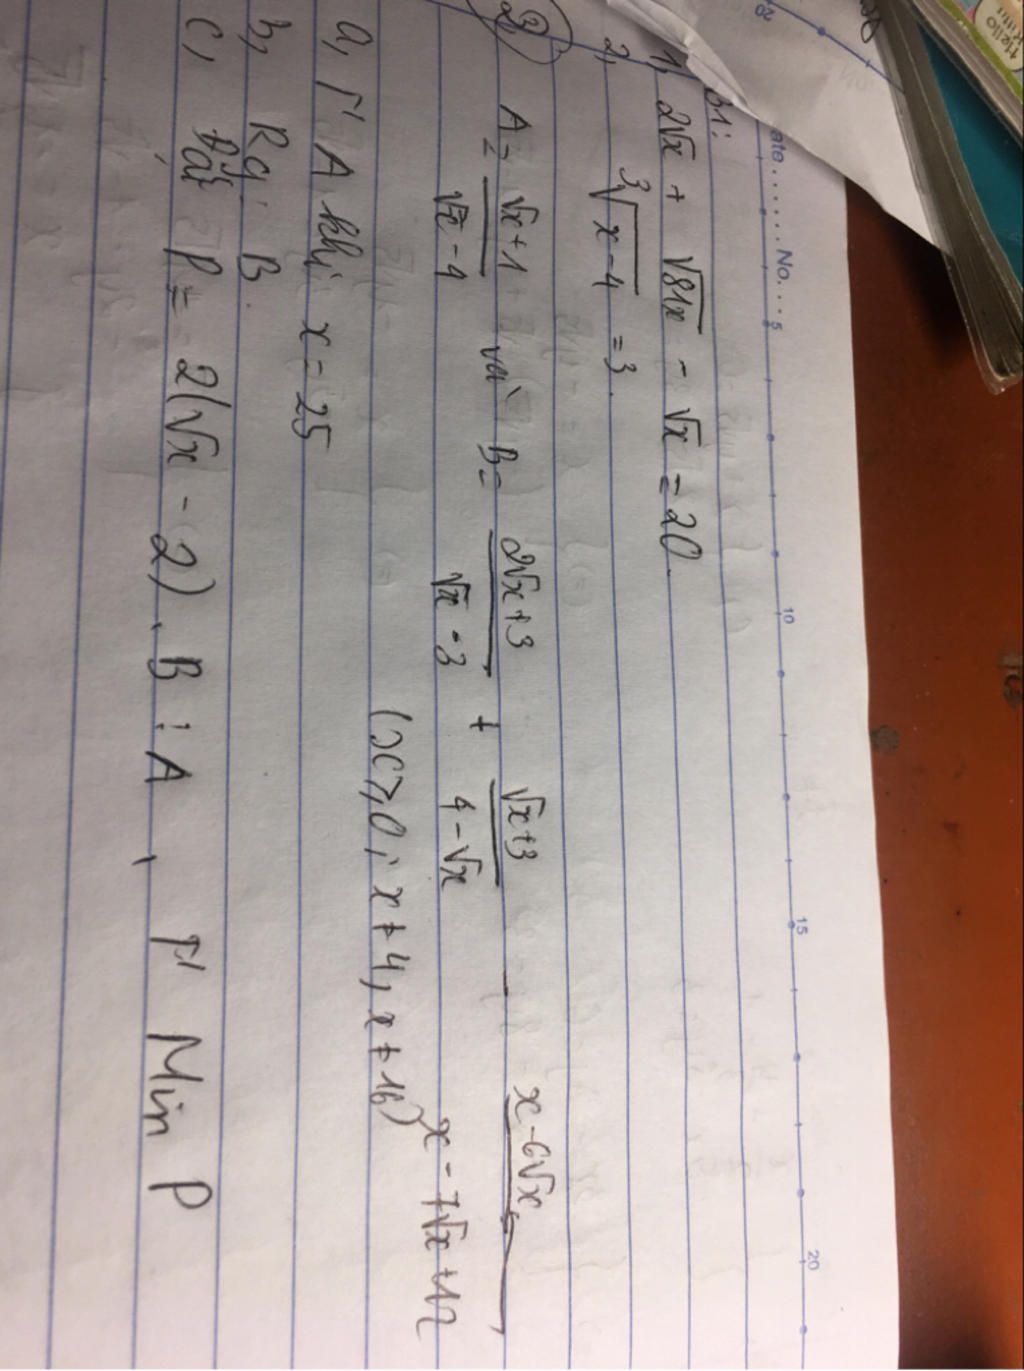 Hello
ate........No....
5 10 15 20
B1:
1, 2√x + √81x - √x = 20.
2, ∛x-4 = 3.
B2,
A = √x+1 / √x-4 và B = 2√x+3 / √x-3 + √x+3 / 4-√x - x-6√x / x-7√x+12
(x≥0; x≠4, x≠16)
a, T' A khi x = 25
b, Rg: B.
c, Đặt P = 2(√x - 2). B : A, T' Min P